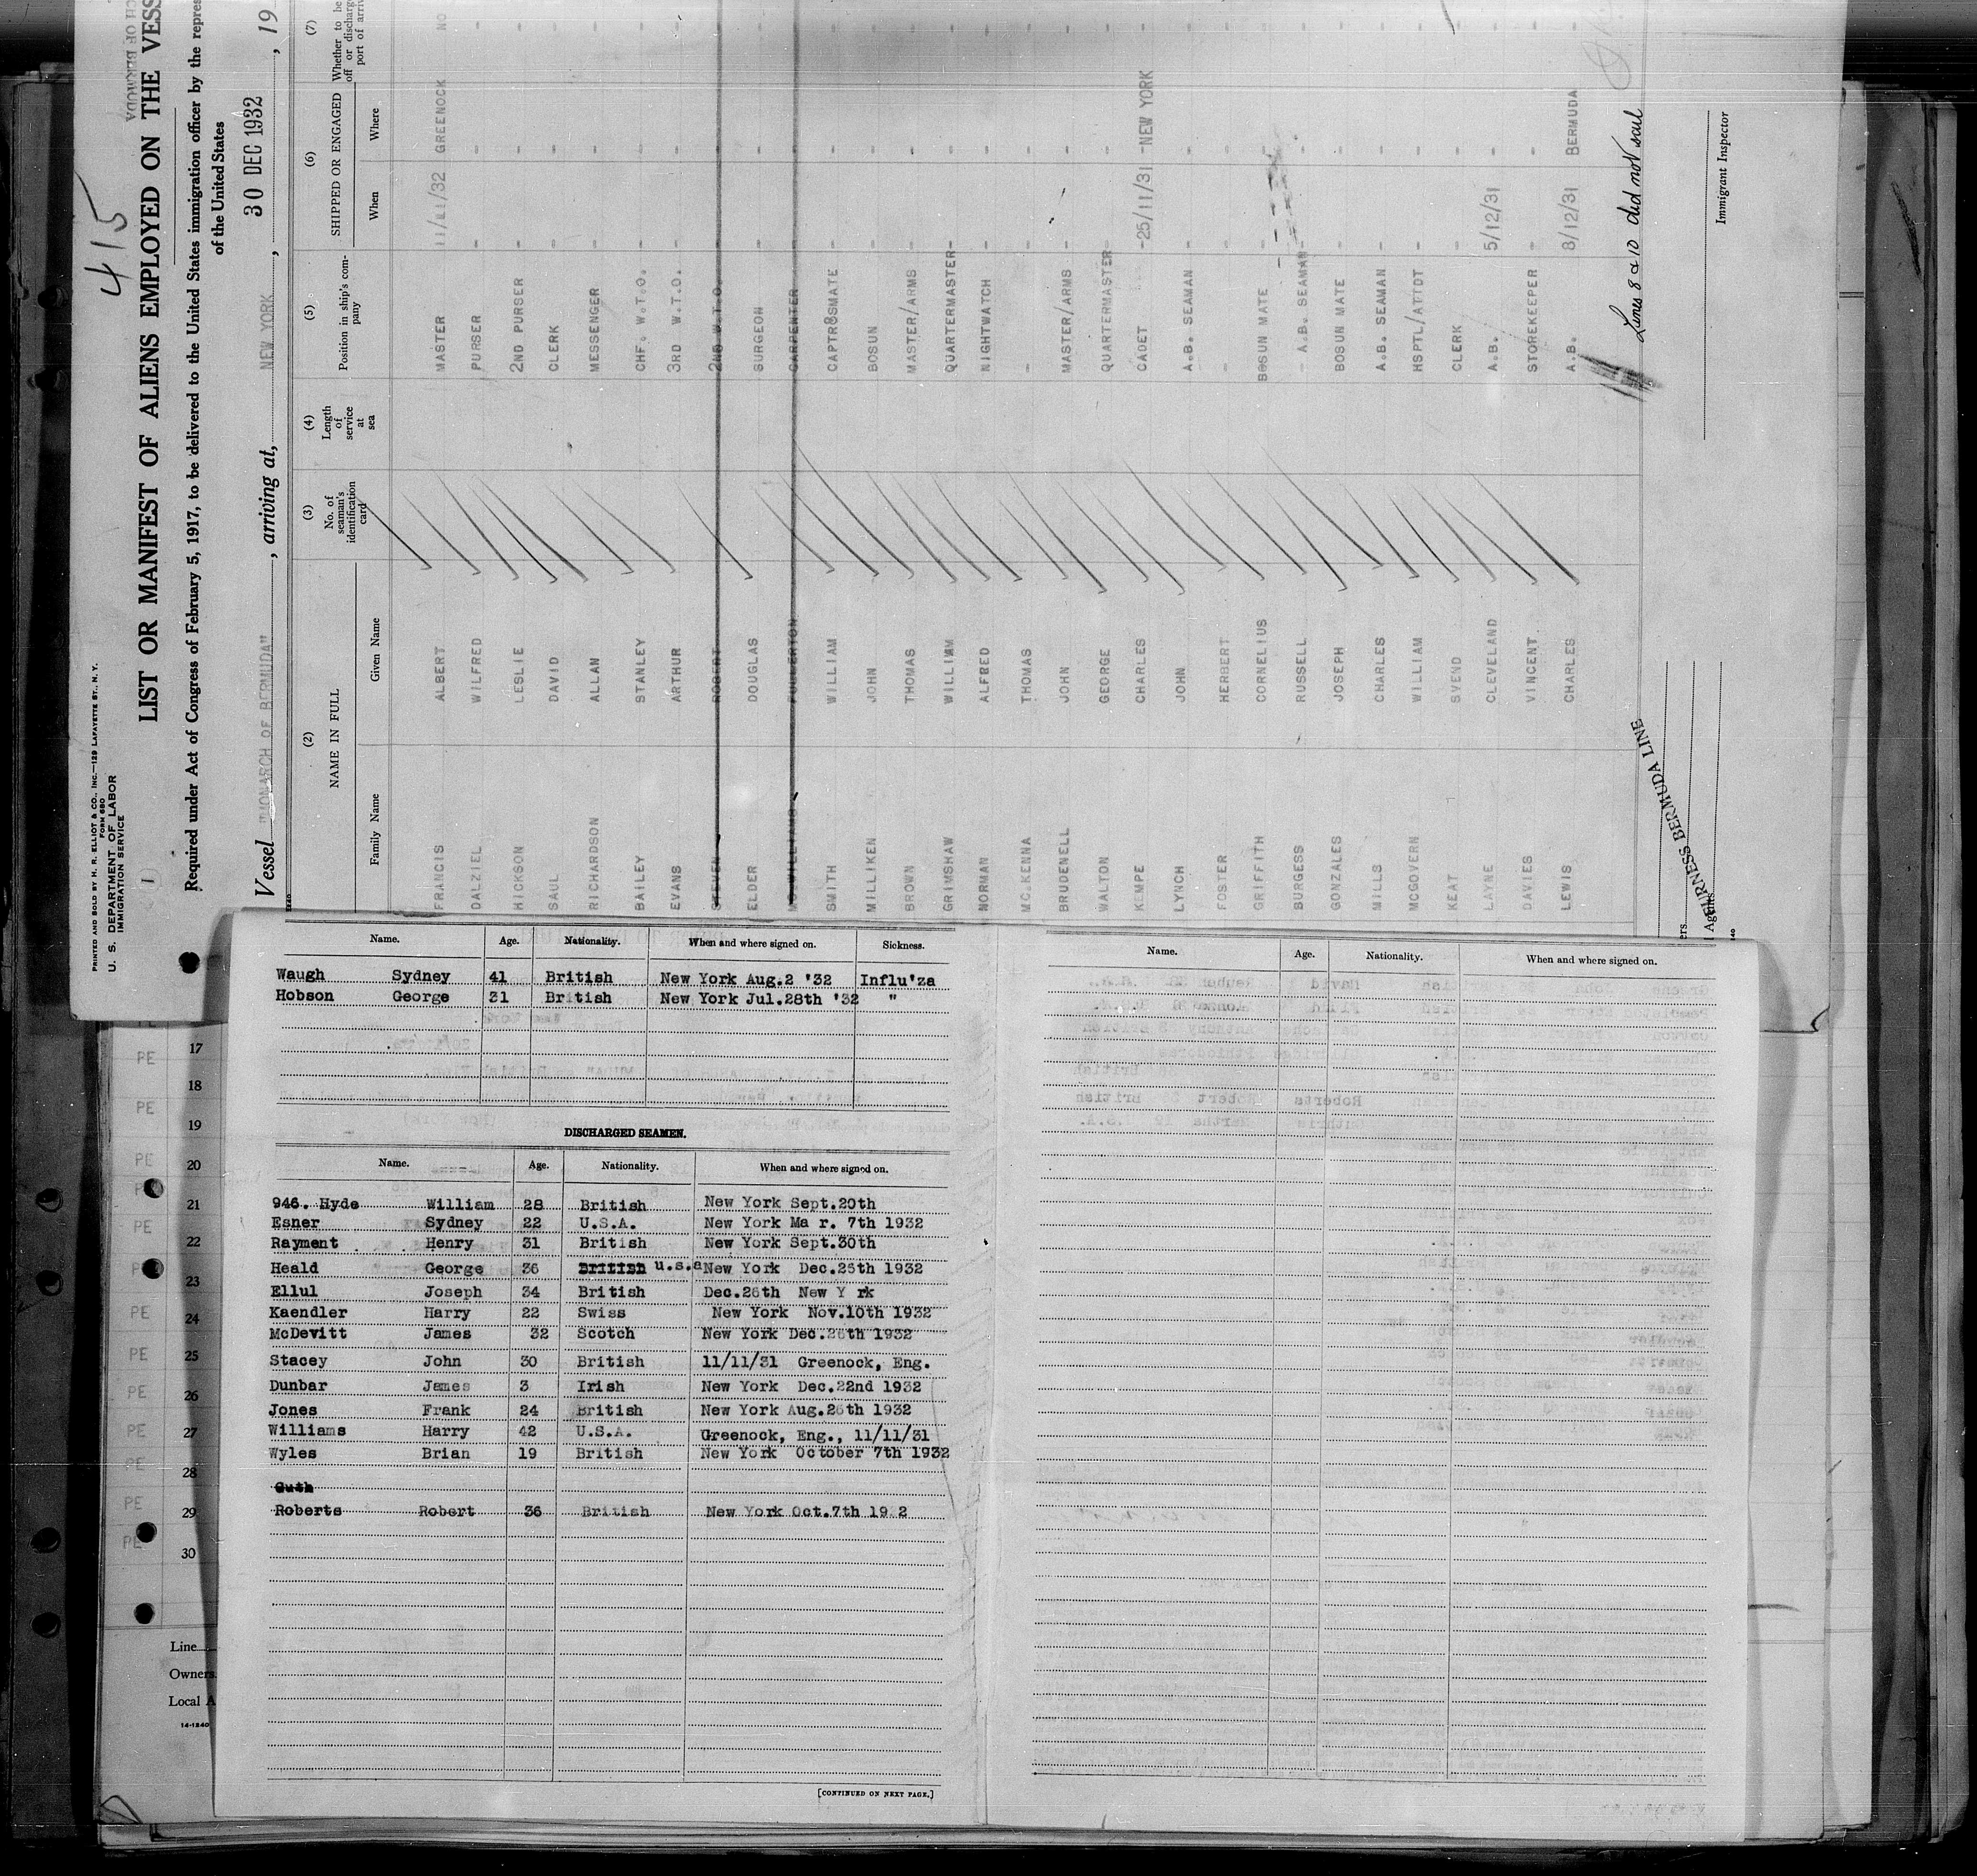 415
PRINTED AND SOLD BY H. R. ELLIOT & CO., INC.—129 LAFAYETTE ST., N. Y.
FORM 680
U. S. DEPARTMENT OF LABOR
IMMIGRATION SERVICE
1
LIST OR MANIFEST OF ALIENS EMPLOYED ON THE VESS
Required under Act of Congress of February 5, 1917, to be delivered to the United States immigration officer by the repres
of the United States
Vessel "MONARCH OF BERMUDA", arriving at, NEW YORK, 30 DEC 1932, 19
(2) (3) (4) (5) (6) (7)
NAME IN FULL No. of seaman's identification card Length of service at sea Position in ship's company SHIPPED OR ENGAGED Whether to be off or discharge port of arriv
Family Name Given Name When Where
FRANCIS ALBERT MASTER 11/11/32 GREENOCK NO
DALZIEL WILFRED PURSER - - -
HICKSON LESLIE 2ND PURSER - - -
SAUL DAVID CLERK - - -
RICHARDSON ALLAN MESSENGER - - -
BAILEY STANLEY CHF. W.T.O. - - -
EVANS ARTHUR 3RD W.T.O. - - -
STEVEN ROBERT 2ND W.T.O. - - -
ELDER DOUGLAS SURGEON - - -
MCWILLIAMS FULLERTON CARPENTER - - -
SMITH WILLIAM CAPTR8SMATE - - -
MILLIKEN JOHN BOSUN - - -
BROWN THOMAS MASTER/ARMS - - -
GRIMSHAW WILLIAM QUARTERMASTER - - -
NORMAN ALFRED NIGHTWATCH - - -
MCKENNA THOMAS - - - -
BRUDENELL JOHN MASTER/ARMS - - -
WALTON GEORGE QUARTERMASTER - - -
KEMPE CHARLES CADET -25/11/31 -NEW YORK -
LYNCH JOHN A.B. SEAMAN - - -
FOSTER HERBERT - - - -
GRIFFITH CORNELIUS BOSUN MATE - - -
BURGESS RUSSELL - A.B. SEAMAN - - -
GONZALES JOSEPH BOSUN MATE - - -
MILLS CHARLES A.B. SEAMAN - - -
MCGOVERN WILLIAM HSPTL/ATTDT - - -
KEAT SVEND CLERK - - -
LAYNE CLEVELAND A.B. 5/12/31 - -
DAVIES VINCENT STOREKEEPER - - -
LEWIS CHARLES A.B. 8/12/31 BERMUDA -
Lines 8 & 10 did not sail
FURNESS BERMUDA LINE
Agents
Immigrant Inspector
Name. Age. Nationality. When and where signed on. Sickness.
Waugh Sydney 41 British New York Aug.2 '32 Influ'za
Hobson George 31 British New York Jul.28th '32 "
DISCHARGED SEAMEN.
Name. Age. Nationality. When and where signed on.
946. Hyde William 28 British New York Sept.20th
Esner Sydney 22 U.S.A. New York Ma r. 7th 1932
Rayment Henry 31 British New York Sept.30th
Heald George 36 British u.s.a New York Dec.25th 1932
Ellul Joseph 34 British Dec.26th New Y rk
Kaendler Harry 22 Swiss New York Nov.10th 1932
McDevitt James 32 Scotch New York Dec.26th 1932
Stacey John 30 British 11/11/31 Greenock, Eng.
Dunbar James 3 Irish New York Dec.22nd 1932
Jones Frank 24 British New York Aug.26th 1932
Williams Harry 42 U.S.A. Greenock, Eng., 11/11/31
Wyles Brian 19 British New York October 7th 1932
Guth
Roberts Robert 36 British New York Oct.7th 19 2
[CONTINUED ON NEXT PAGE.]
Name. Age. Nationality. When and where signed on.
PE 17
18
PE 19
PE 20
21
PE 22
PE 23
PE 24
PE 25
PE 26
PE 27
PE 28
PE 29
PE 30
Line
Owners
Local A
14-1240